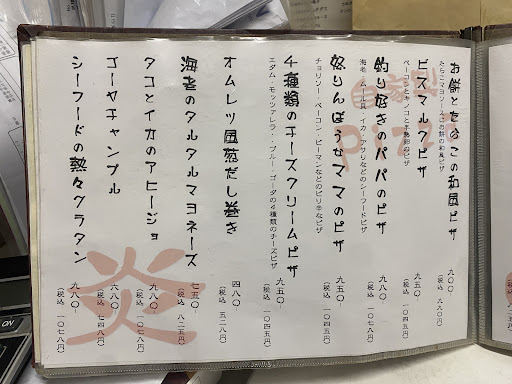 お餅とたらこの和風ピザ
たらこマヨソースとお餅の和風ピザ
九〇〇-
(税込 九九〇円)
ビスマルクピザ
ベーコンとキノコと半熟卵のピザ
九五〇-
(税込 一〇四五円)
釣り好きのパパのピザ
九八〇-
(税込 一〇七八円)
怒りんぼうなママのピザ
チョリソー・ベーコン・ピーマンなどのピリ辛なピザ
九五〇-
(税込 一〇四五円)
4種類のチーズクリームピザ
エダム・モッツァレラ・ブルー・ゴーダの4種類のチーズピザ
九五〇-
(税込 一〇四五円)
オムレツ風荒だし巻き
四八〇-
(税込 五二八円)
海老のタルタルマヨネーズ
七五〇-
(税込 八二五円)
タコとイカのアヒージョ
九八〇-
(税込 一〇七八円)
ゴーヤチャンプル
六八〇-
(税込 七四八円)
シーフードの熱々グラタン
九八〇-
(税込 一〇七八円)
自家製
pizza
炎
ON